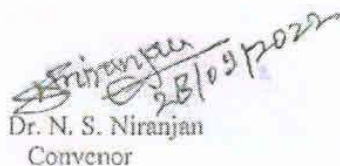 Niranjan
28/09/2022
Dr. N. S. Niranjan
Convenor